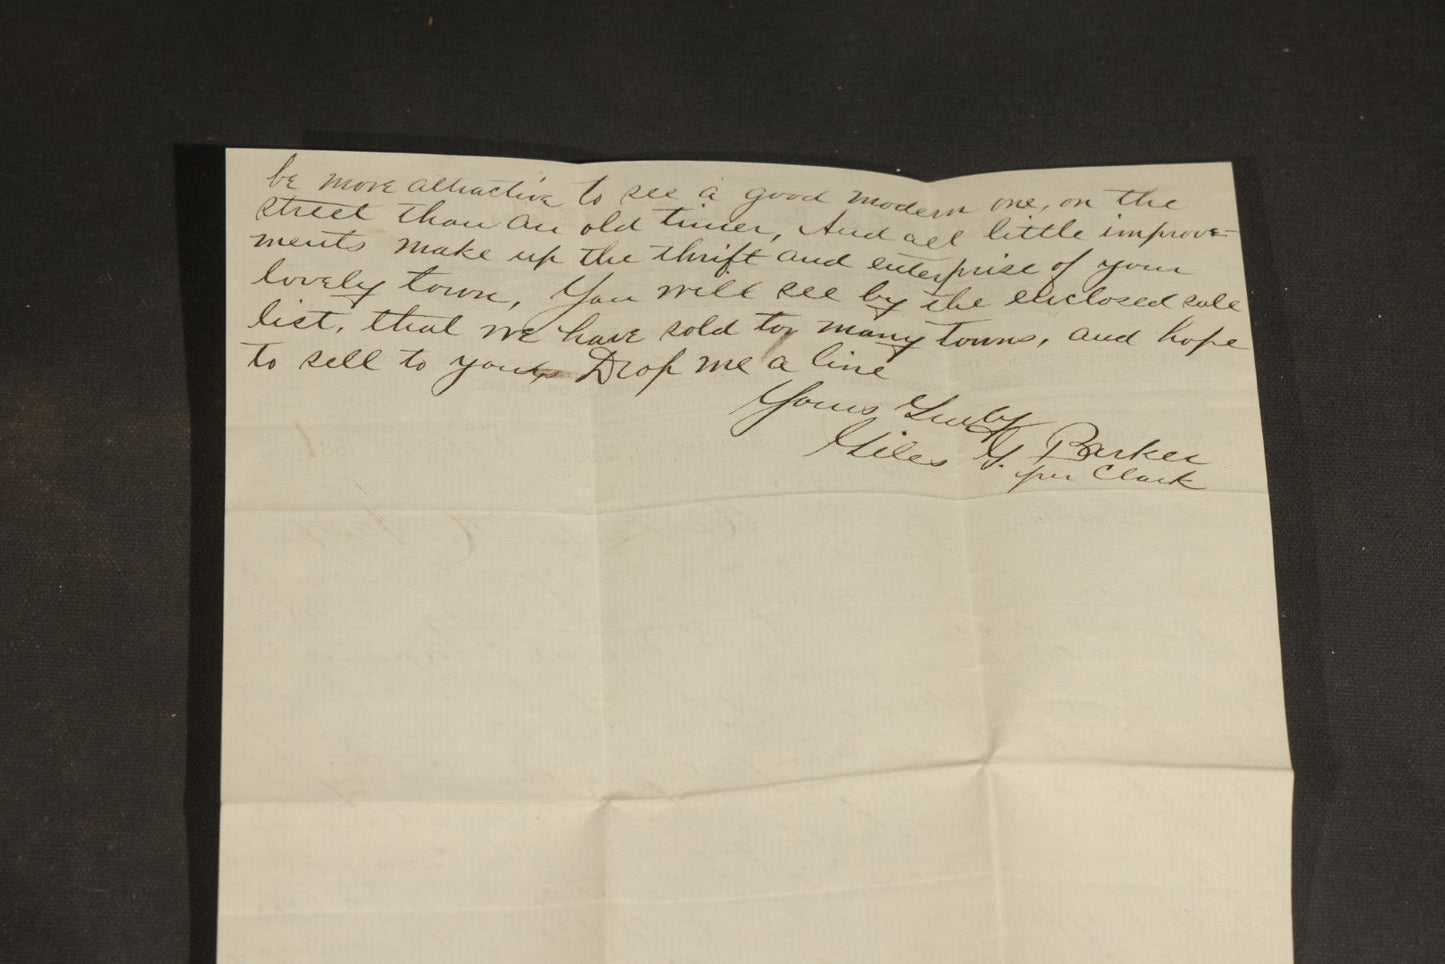 be more attractive to see a good modern one, on the
street than an old timer, And all little improve-
ments make up the thrift and enterprise of your
lovely town, You will see by the enclosed sale
list, that we have sold to many towns, and hope
to sell to yours Drop me a line
Yours Truly
Giles G. Barker
per Clark